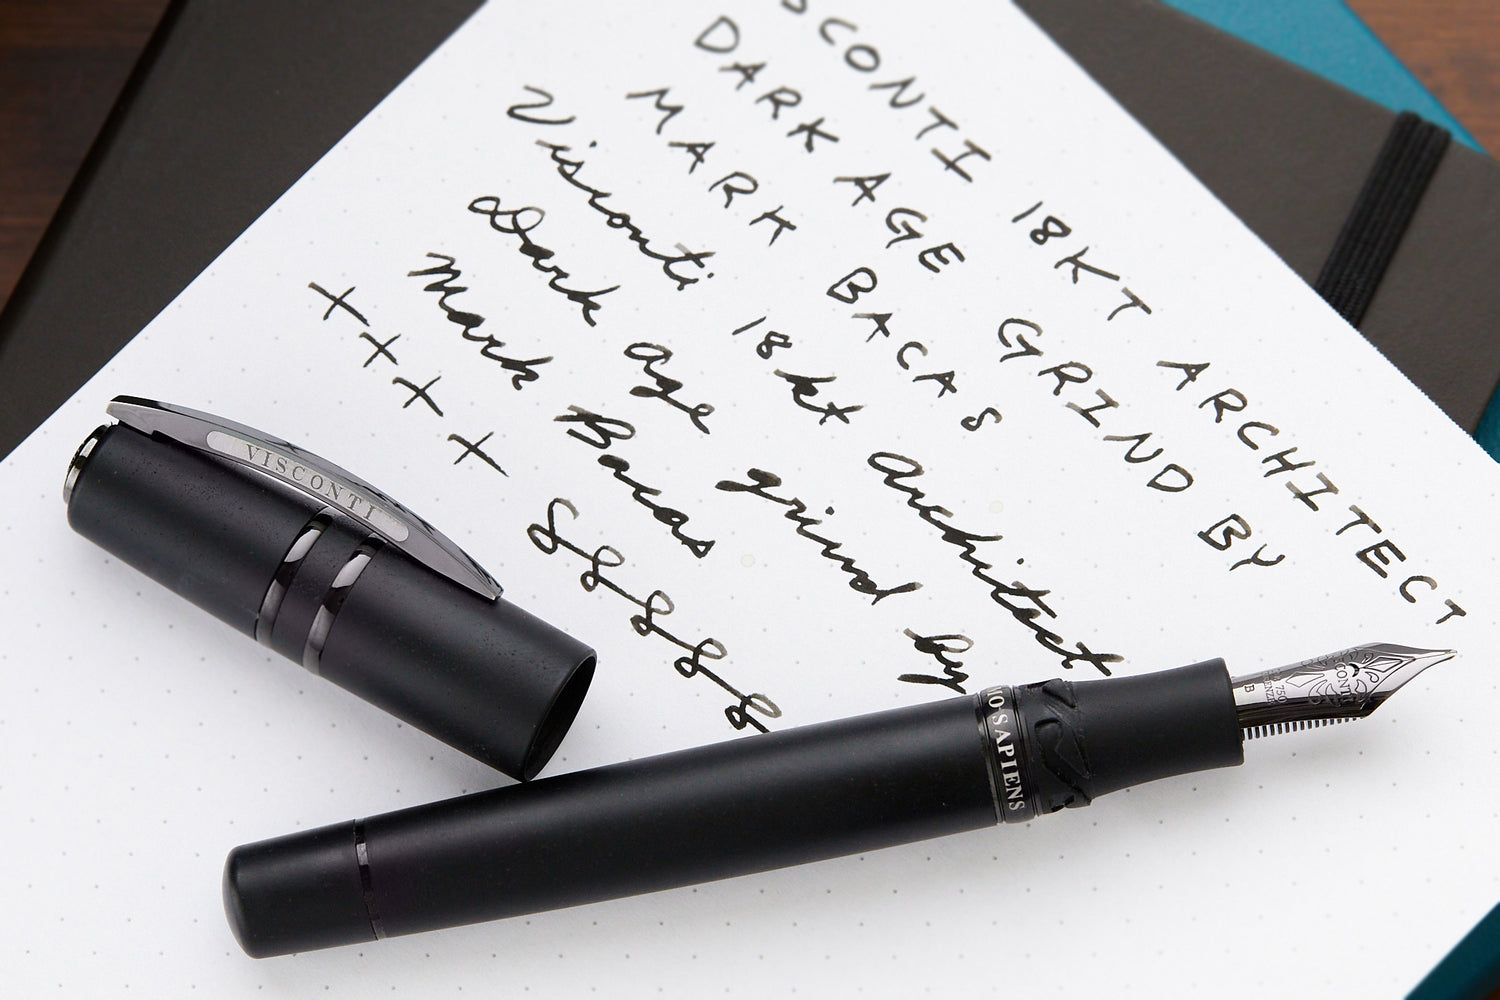 SCONTI 18KT ARCHITECT
DARK AGE GRIND BY
MARK BACAS
Visconti 18kt Architect
Dark age grind by
Mark Bacas
++++ 88888
VISCONTI
MO SAPIENS
CONTI
750
B